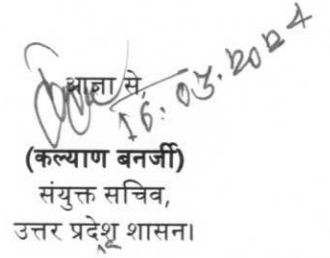 आज्ञा से,
16.03.2024
(कल्याण बनर्जी)
संयुक्त सचिव,
उत्तर प्रदेश शासन।